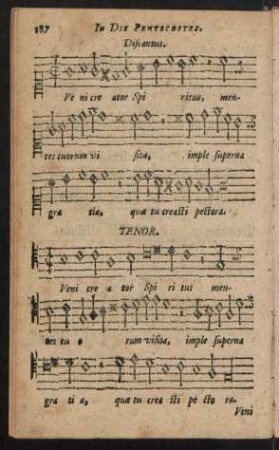 187 IN DIE PENTECOSTES.
Discantus.
Ve ni cre ator Spi ritus, men-
tes tuorum vi sita, imple superna
gra tia, quæ tu creasti pectora.
TENOR.
Veni cre a tor Spi ri tus men-
tes tu o rum visita, imple superna
gra ti a, quæ tu crea sti pe cto ra.
Veni